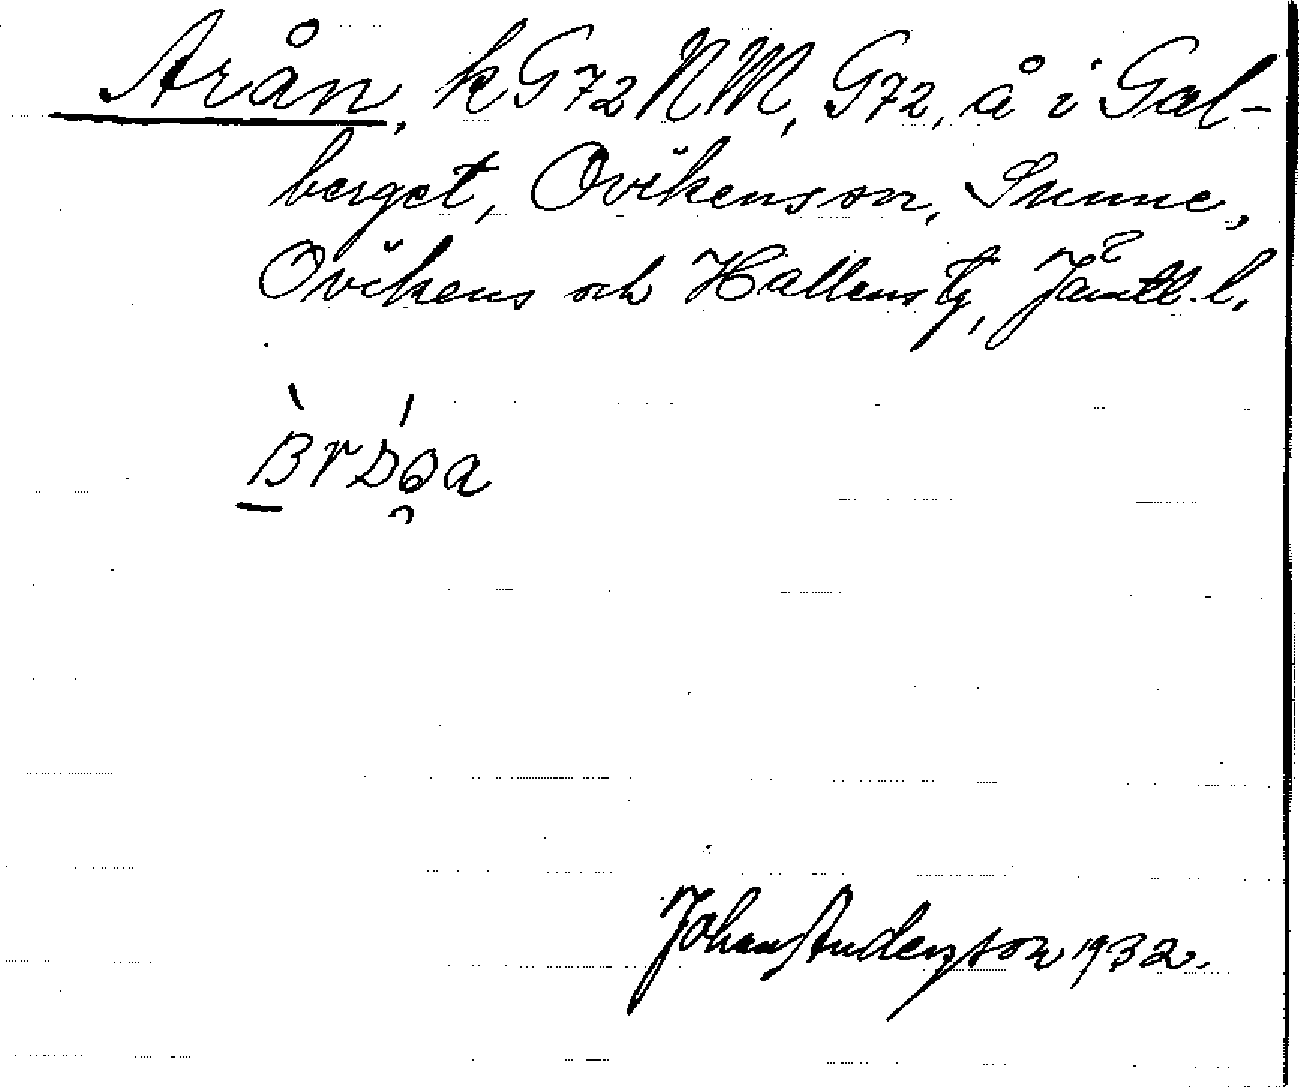 Arån, k G72 NM, G72, å i Gal-
berget, Ovikenson, Sunne,
Ovikens och Hallens tg, Jämtl. l.
Johan Anderzson 1932.